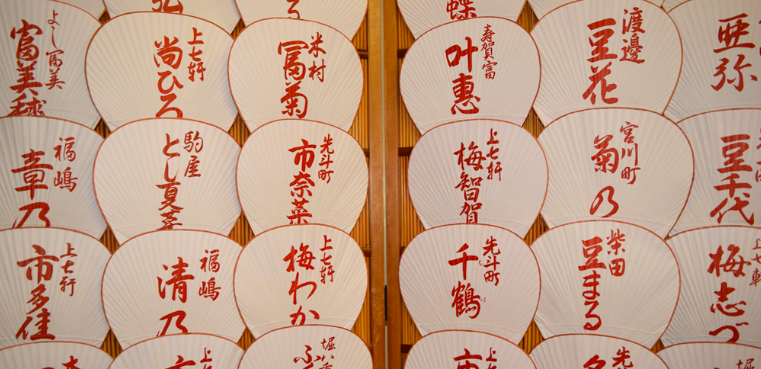 よし冨美
富美毬
上七軒
尚ひろ
米村
冨菊
寿賀富
叶惠
渡邊
豆花
亜弥
福嶋
章乃
駒屋
とし夏菜
先斗町
市奈菜
上七軒
梅智賀
宮川町
菊乃
豆千代
上七軒
市多佳
福嶋
清乃
上七軒
梅わか
先斗町
千鶴
柴田
豆まる
上七軒
梅志づ